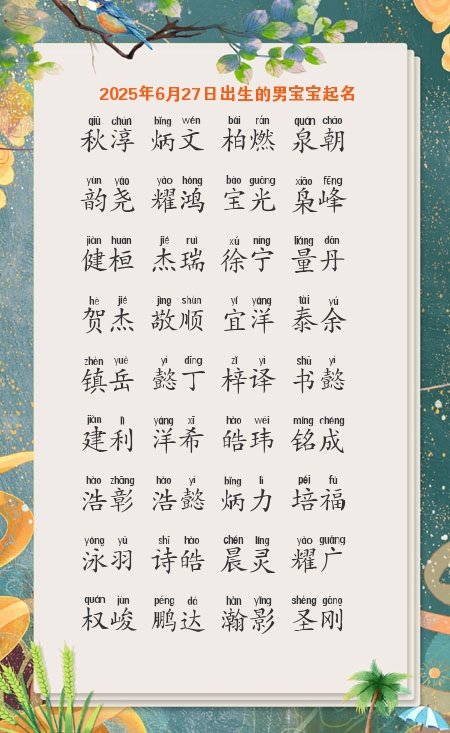 2025年6月27日出生的男宝宝起名
qiū chún bǐng wén bǎi rán quán cháo
秋淳 炳文 柏燃 泉朝
yùn yáo yào hóng bǎo guāng xiāo fēng
韵尧 耀鸿 宝光 枭峰
jiàn huán jié ruì xú níng liáng dān
健桓 杰瑞 徐宁 量丹
hè jié jìng shùn yí yáng tài yú
贺杰 敬顺 宜洋 泰余
zhèn yuè yì dīng zǐ yì shū yì
镇岳 懿丁 梓译 书懿
jiàn lì yáng xī hào wěi míng chéng
建利 洋希 皓玮 铭成
hào zhāng hào yì bǐng lì péi fú
浩彰 浩懿 炳力 培福
yǒng yǔ shī hào chén líng yào guǎng
泳羽 诗皓 晨灵 耀广
quán jùn péng dá hàn yǐng shèng gāng
权峻 鹏达 瀚影 圣刚